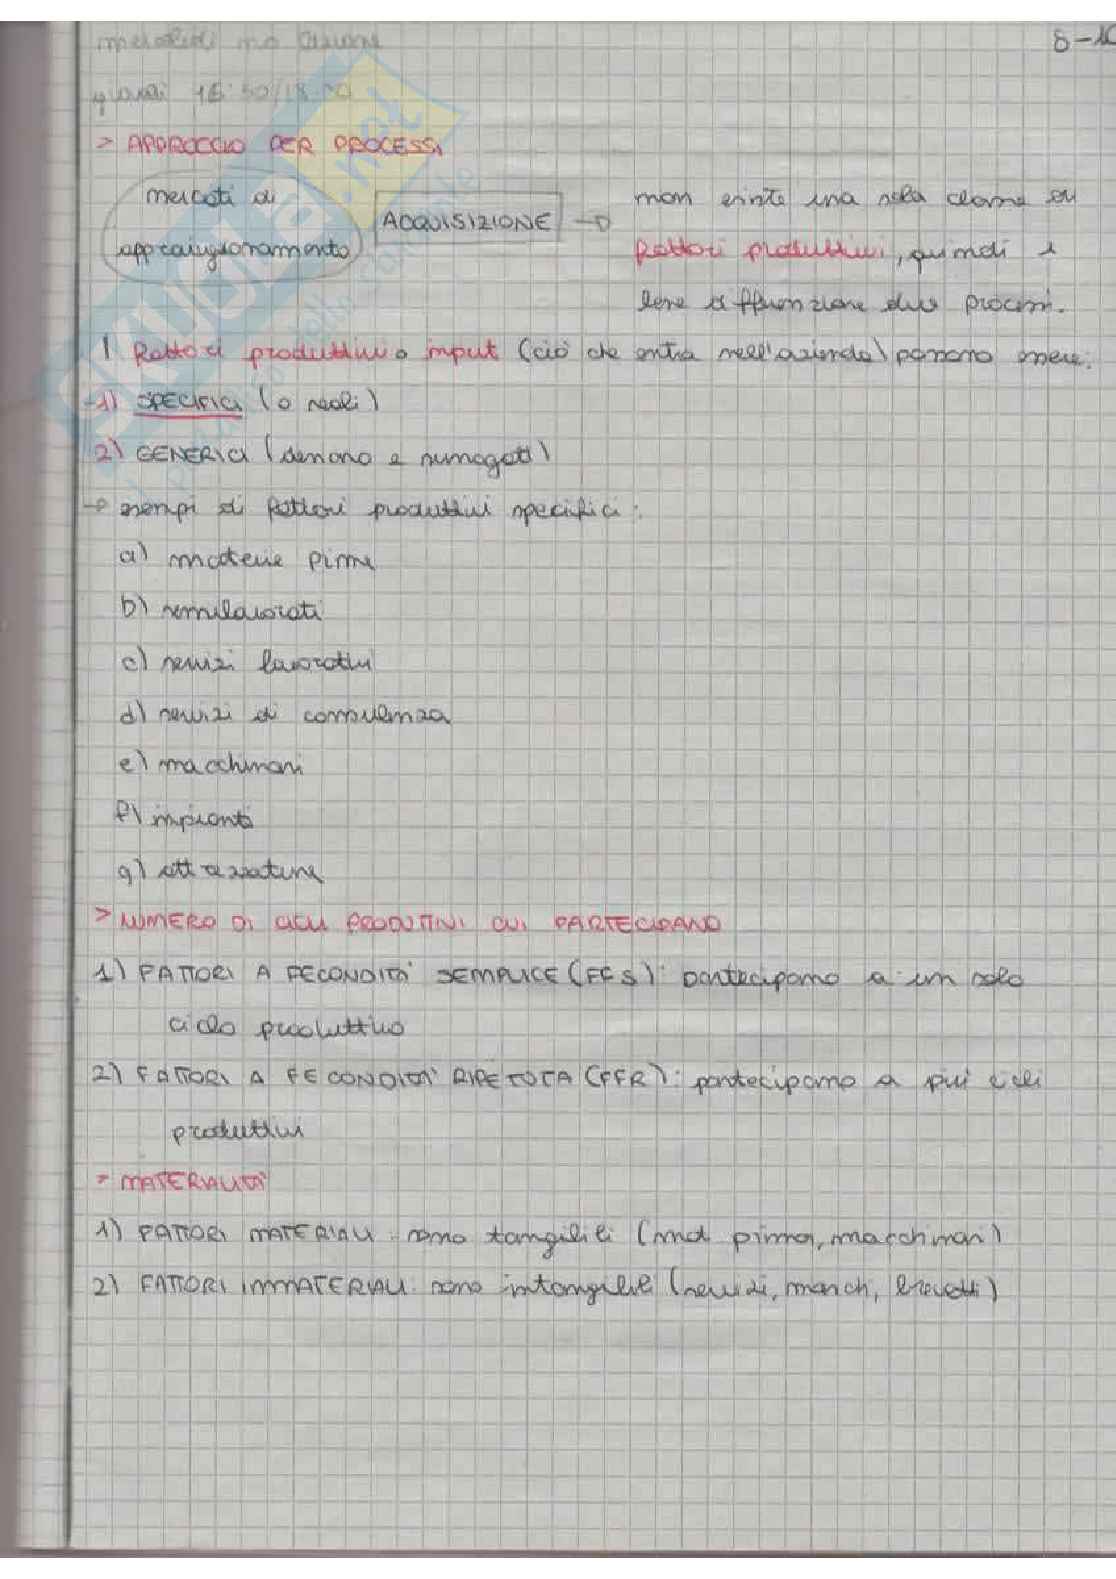 mercoledì no lezione
8-10
giovedì 16:30/18:00
> APPROCCIO PER PROCESSI
mercati di approvvigionamento
ACQUISIZIONE →
non esiste una sola classe di
fattori produttivi, quindi è
bene differenziare due processi.
I fattori produttivi o input (ciò che entra nell'azienda) possono essere:
1) SPECIFICI (o reali)
2) GENERICI (denaro e surrogati)
→ esempi di fattori produttivi specifici:
a) materie prime
b) semilavorati
c) servizi lavorativi
d) servizi di consulenza
e) macchinari
f) impianti
g) attrezzature
> NUMERO DI CICLI PRODUTTIVI CUI PARTECIPANO
1) FATTORI A FECONDITÀ SEMPLICE (FFS): partecipano a un solo
ciclo produttivo
2) FATTORI A FECONDITÀ RIPETUTA (FFR): partecipano a più cicli
produttivi
> MATERIALITÀ
1) FATTORI MATERIALI: sono tangibili (mat prima, macchinari)
2) FATTORI IMMATERIALI: sono intangibili (servizi, marchi, brevetti)
SKUOLA.net